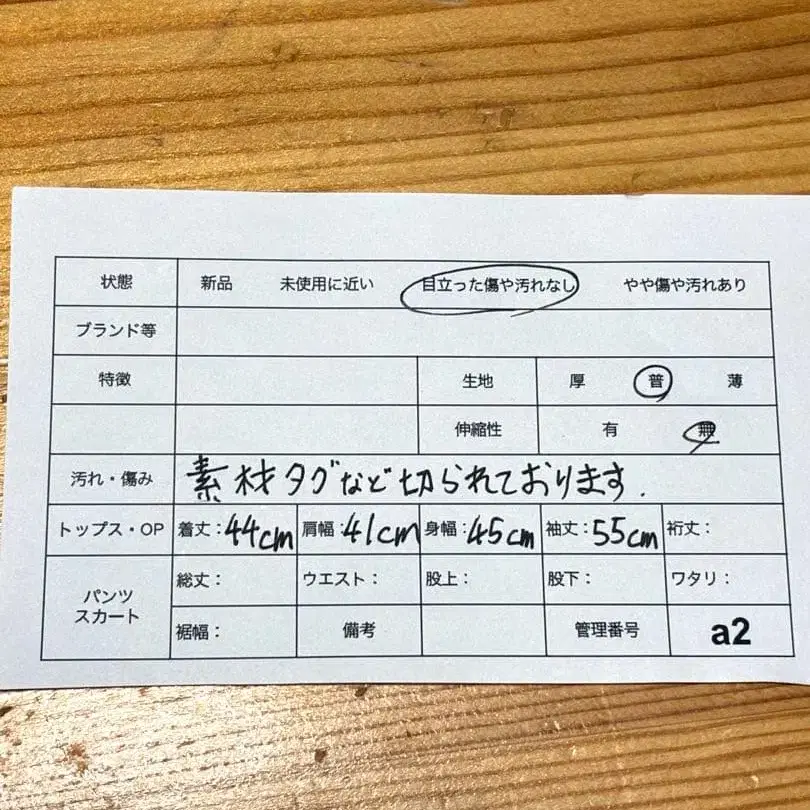 状態 新品 未使用に近い 目立った傷や汚れなし やや傷や汚れあり
ブランド等
特徴 生地 厚 普 薄
伸縮性 有 無
汚れ・傷み 素材タグなど切られております.
トップス・OP 着丈:44cm 肩幅:41cm 身幅:45cm 袖丈:55cm 裄丈:
パンツ スカート 総丈: ウエスト: 股上: 股下: ワタリ:
裾幅: 備考 管理番号 a2